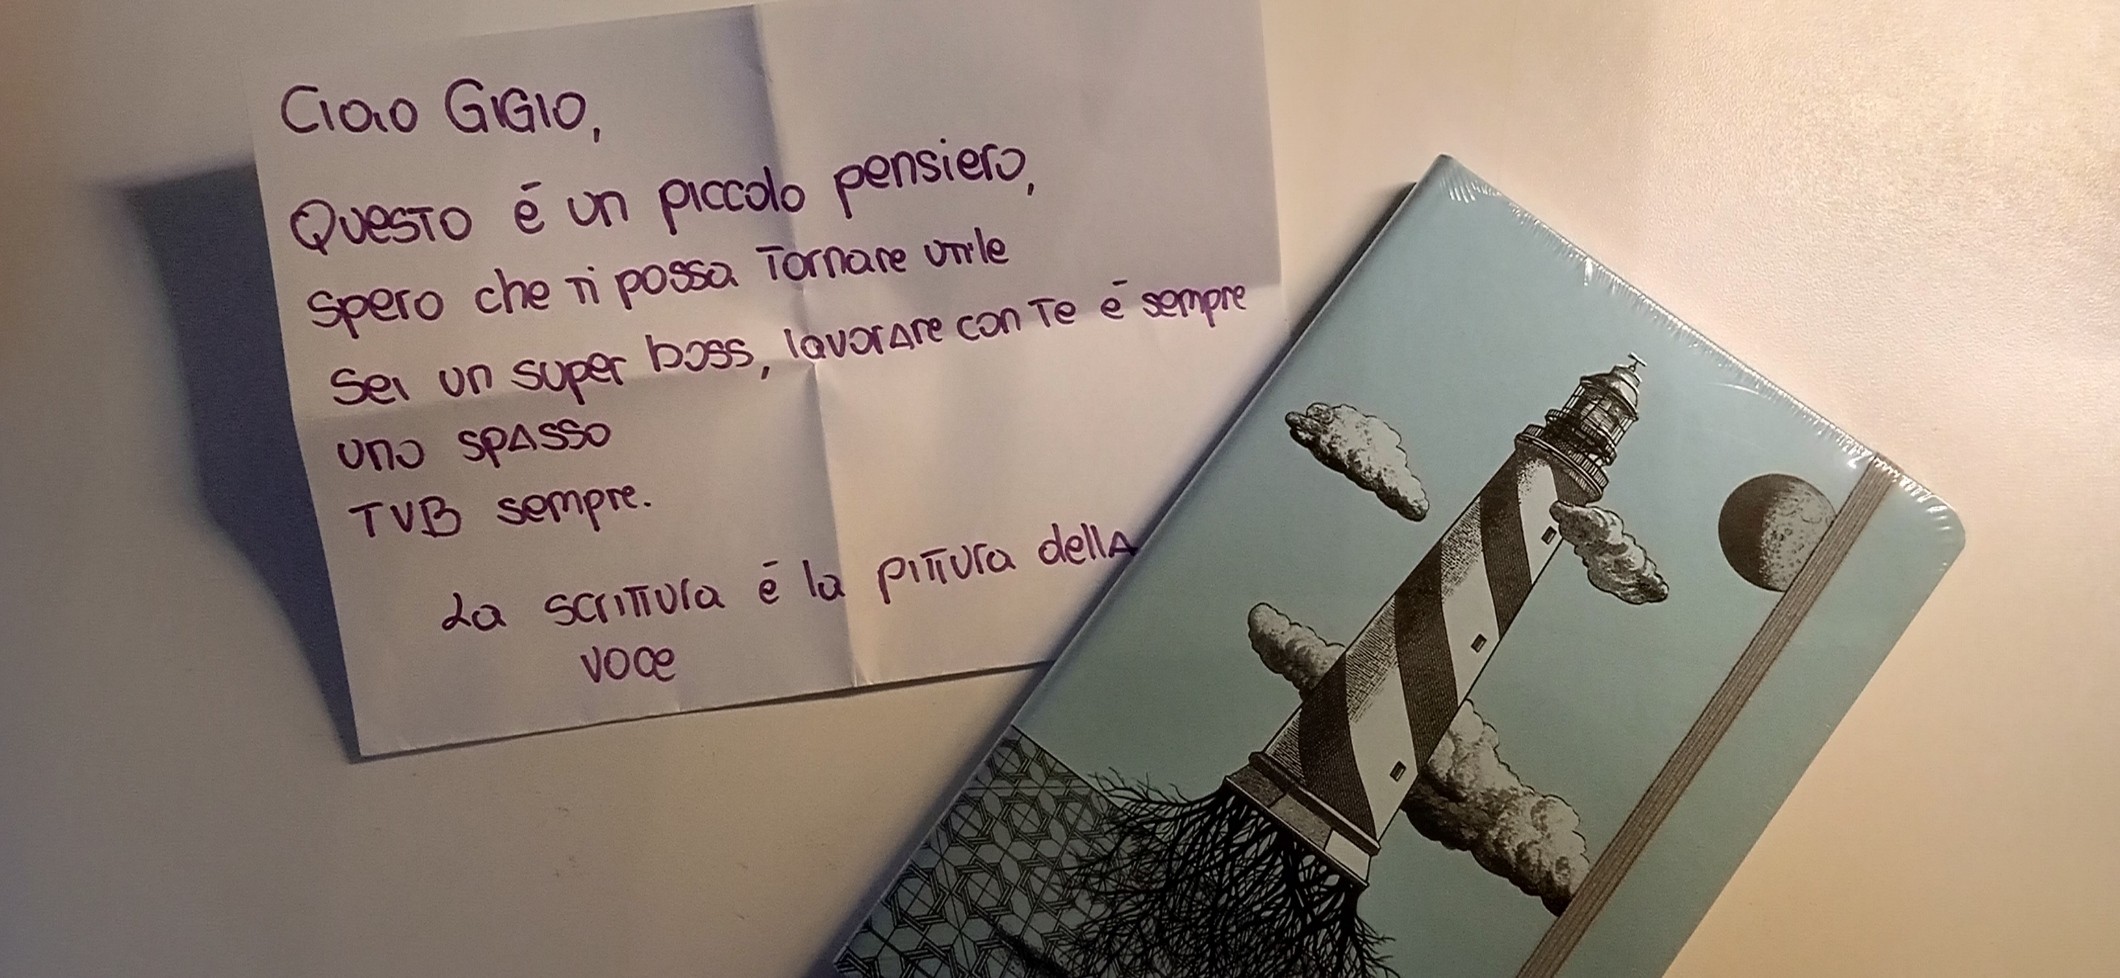 Ciao GIGIO,
Questo é un piccolo pensiero,
spero che ti possa tornare utile
Sei un super boss, lavorare con te é sempre
uno spasso
TVB sempre.
La scrittura é la pittura della
voce